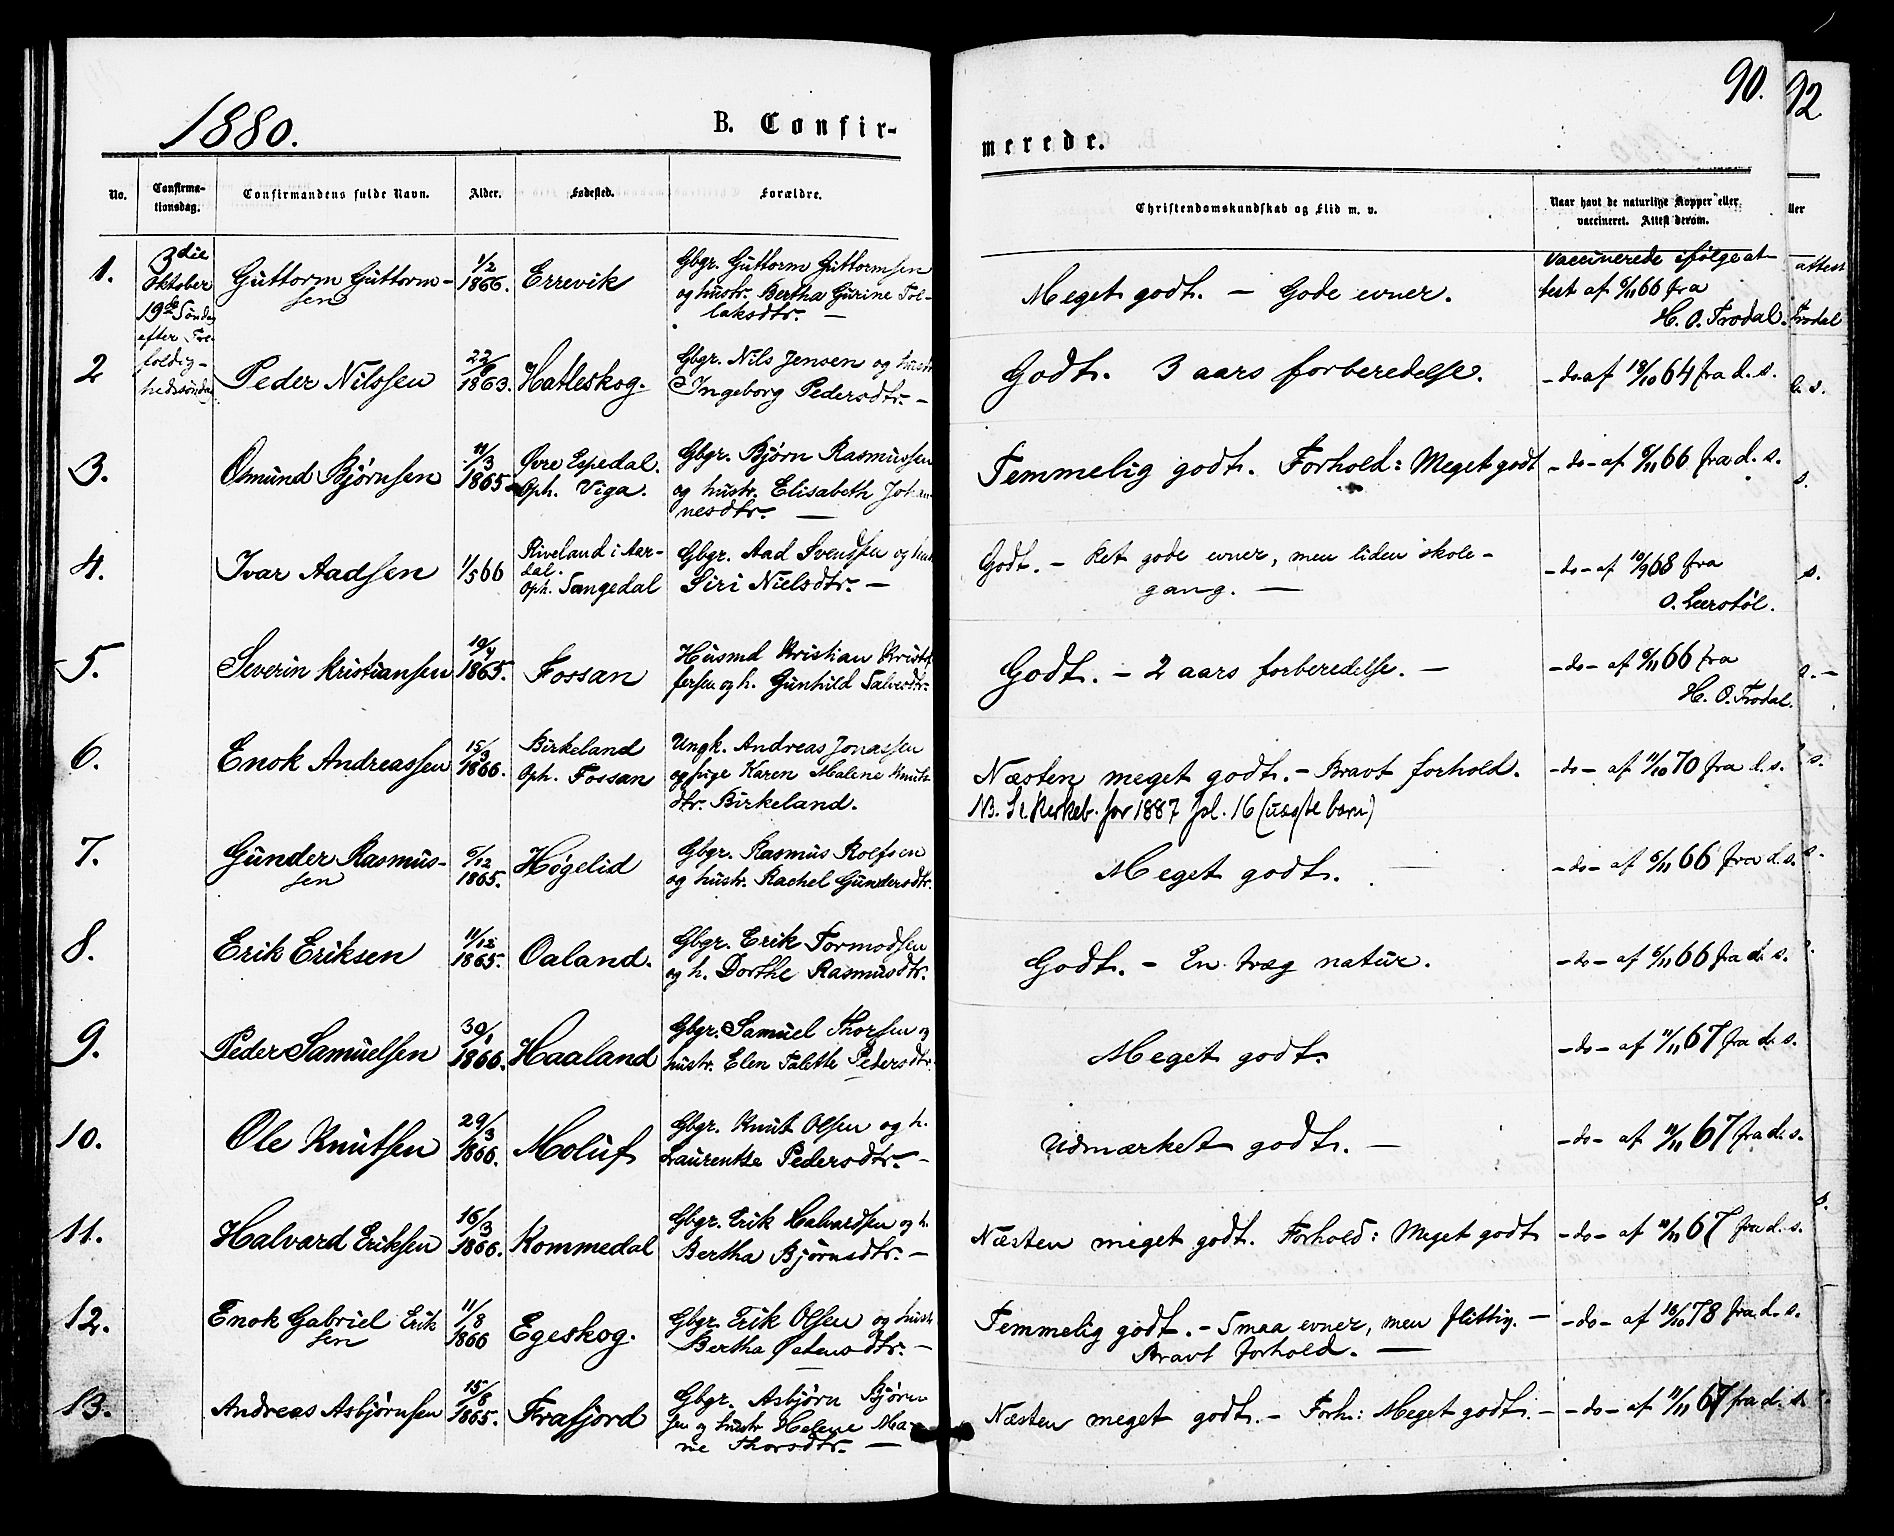 1880.
B. Confir-
No.
Confirma-
tionsdag.
Confirmandens fulde Navn.
Alder.
Fødested.
Forældre.
1.
3die
Oktober
19de Sønda
efter Tre
foldig-
hedssønda
Guttorm Guttorm-
sen
1/2
1866.
Errevik
Gbgr. Guttorm Guttormsen
og hustr. Bertha Gurine Tol-
laksdtr. —
2
Peder Nilssen
22/
1863.
Hatleskog.
Gbgr. Nils Jensen og hustr
Ingeborg Pedersdtr. —
3.
Osmund Bjørnsen
11/3
1865
Øvre Espedal.
Oph. Viga.
Gbgr. Bjørn Rasmussen
og hustr. Elisabeth Johan
nesdtr. —
4.
Ivar Aadsen
1/5 66
Riveland i Aar-
dal.
Oph. Tangedal
Gbgr. Aad Svendsen og hust
Siri Nielsdtr. —
5.
Severin Kristiansen
10/4
1865.
Fossan
Husmd Kristian Kristof
fersen og h. Gunhild Salvesdtr.
6.
Enok Andreassen
15/3
1866.
Birkeland
Oph. Fossan
Ungk. Andreas Jonassen
og pige Karen Malene Knuts
dtr. Birkeland.
7.
Gunder Rasmus-
sen
6/12
1865.
Høgelid
Gbgr. Rasmus Roefsen
og hustr. Rachel Gundersdtr.
8.
Erik Eriksen
11/12
1865.
Oaland.
Gbgr. Erik Tormodsen
og h. Dorthe Rasmusdtr.
9.
Peder Samuelsen
30/1
1866.
Haaland
Gbgr. Samuel Thorsen og
hustr. Elen Talette Pedersdtr.
10.
Ole Knutsen
29/3
1866.
Moluf
Gbgr. Knut Olsen og h.
Laurentse Pedersdtr. —
11.
Halvard Eriksen
16/3
1866.
Kommedal
Gbgr. Erik Halvardsen og h.
Bertha Bjørnsdtr. —
12.
Enok Gabriel Erik
sen
11/8
1866
Egeskog.
Gbgr. Erik Olsen og hustr
Bertha Østensdtr. —
13.
Andreas Asbjørnsen
15/8
1865.
Frafjord
Gbgr. Asbjørn Bjørn
sen og hustr Helene Ma
rie Thorsdtr. —
90.
merede.
Christendomskundskab og Flid m. v.
Naar havt de naturlige Kopper eller
vaccineret. Attest derom.
Meget godt. — Gode evner.
Vaccinerede ifølge at-
test af 6/11 66 fra
H. O. Trodal.
Godt. 3 aars forberedelse.
—do af 18/10 64 fra d. s.
Temmelig godt. Forhold: Meget godt
—do— af 6/11 66 fra d. s.
Godt. — Ret gode evner, men liden skole-
gang. —
—do— af 10/9 68 fra
O. Leerstøl.
Godt. — 2 aars forberedelse. —
—do— af 6/11 66 fra
H. O. Trodal.
Næsten meget godt. — Bravt forhold.
NB. Se Kirkeb. for 1887 fol. 16 (uægte børn)
—do— af 11/10 70 fra d. s.
Meget godt. —
—do— af 6/11 66 fra d. s.
Godt. — En træg natur.
—do— af 6/11 66 fra d. s.
Meget godt.
—do— af 11/11 67 fra d. s.
Udmærket godt. —
—do— af 11/11 67 fra d. s.
Næsten meget godt. Forhold: Meget godt
—do— af 11/11 67 fra d. s.
Temmelig godt. — Smaa evner, men flittig. —
Bravt forhold. —
—do— af 18/10 78 fra d. s.
Næsten meget godt. — Forh.: Meget godt. —
—do— af 11/11 67 fra d. s.
92
ller
attest
Trodal
d. s.
s.
s.
s. —
s.
s.
s.